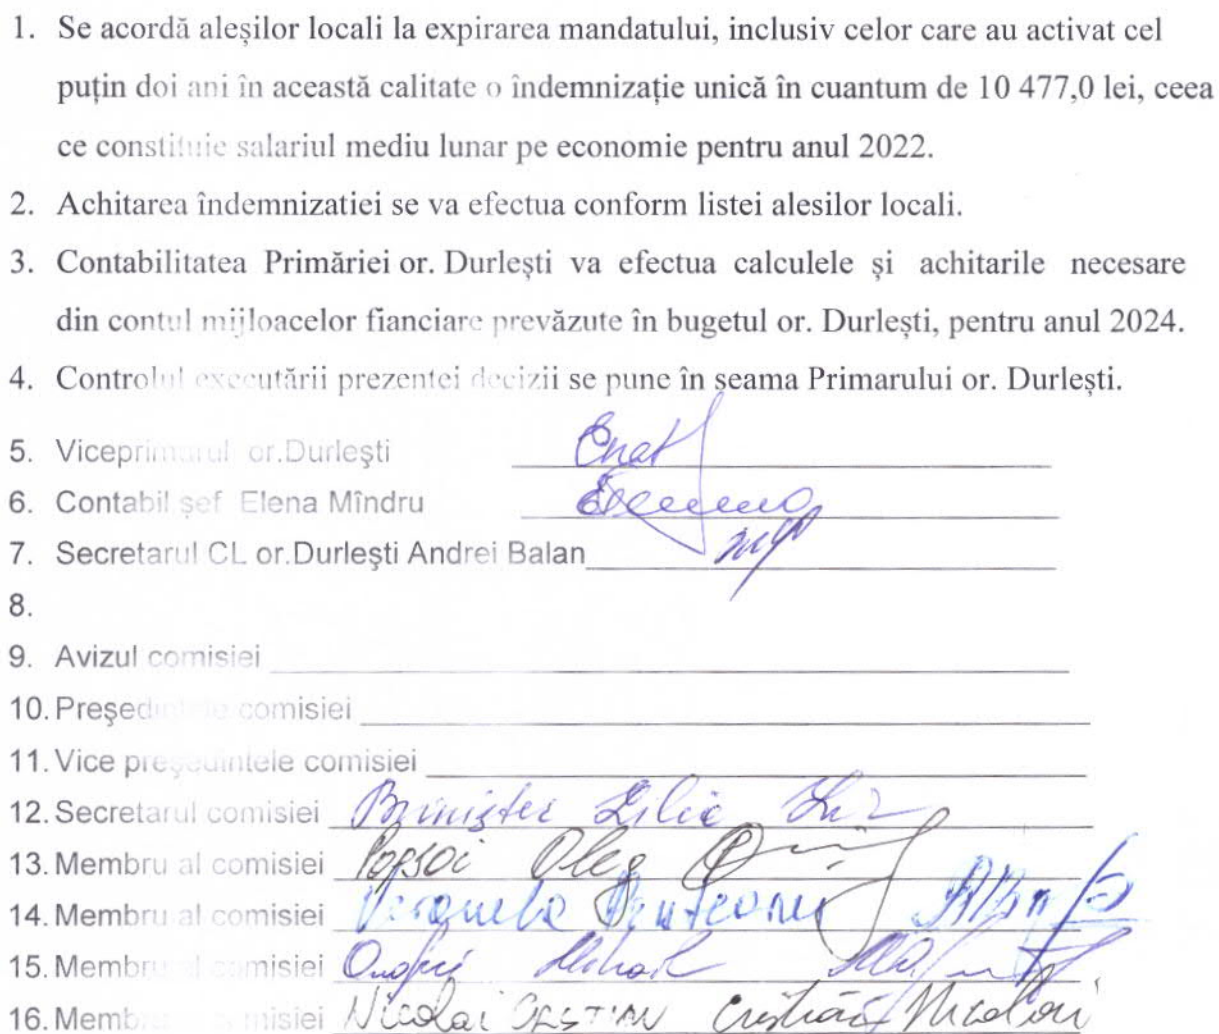 1. Se acordă aleșilor locali la expirarea mandatului, inclusiv celor care au activat cel
puțin doi ani în această calitate o îndemnizație unică în cuantum de 10 477,0 lei, ceea
ce constituie salariul mediu lunar pe economie pentru anul 2022.
2. Achitarea îndemnizatiei se va efectua conform listei alesilor locali.
3. Contabilitatea Primăriei or. Durlești va efectua calculele și achitarile necesare
din contul mijloacelor fianciare prevăzute în bugetul or. Durlești, pentru anul 2024.
4. Controlul executării prezentei decizii se pune în seama Primarului or. Durlești.
5. Viceprimarul or.Durleşti
6. Contabil șef Elena Mîndru
7. Secretarul CL or.Durleşti Andrei Balan
8.
9. Avizul comisiei
10. Preşedintele comisiei
11. Vice preşedintele comisiei
12. Secretarul comisiei Lilia
13. Membru al comisiei Popsoi Oleg
14. Membru al comisiei
15. Membru al comisiei Mihail
16. Membru al comisiei Nicolai